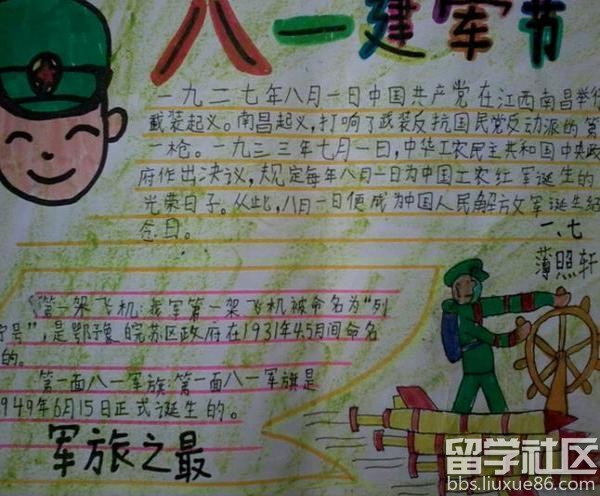 八一建军节
一九二七年八月一日中国共产党在江西南昌举行
武装起义。南昌起义,打响了武装反抗国民党反动派的第
一枪。一九三三年七月一日,中华工农民主共和国中央政
府作出决议,规定每年八月一日为中国工农红军诞生的
光荣日子。从此,八月一日便成为中国人民解放军诞生纪
念日。
一、七
薄照轩
第一架飞机:我军第一架飞机被命名为“列
宁号”,是鄂豫皖苏区政府在1931年4.5月间命名
的。
第一面八一军旗:第一面八一军旗是
1949年6月15日正式诞生的。
军旅之最
留学社区
bbs.liuxue86.com